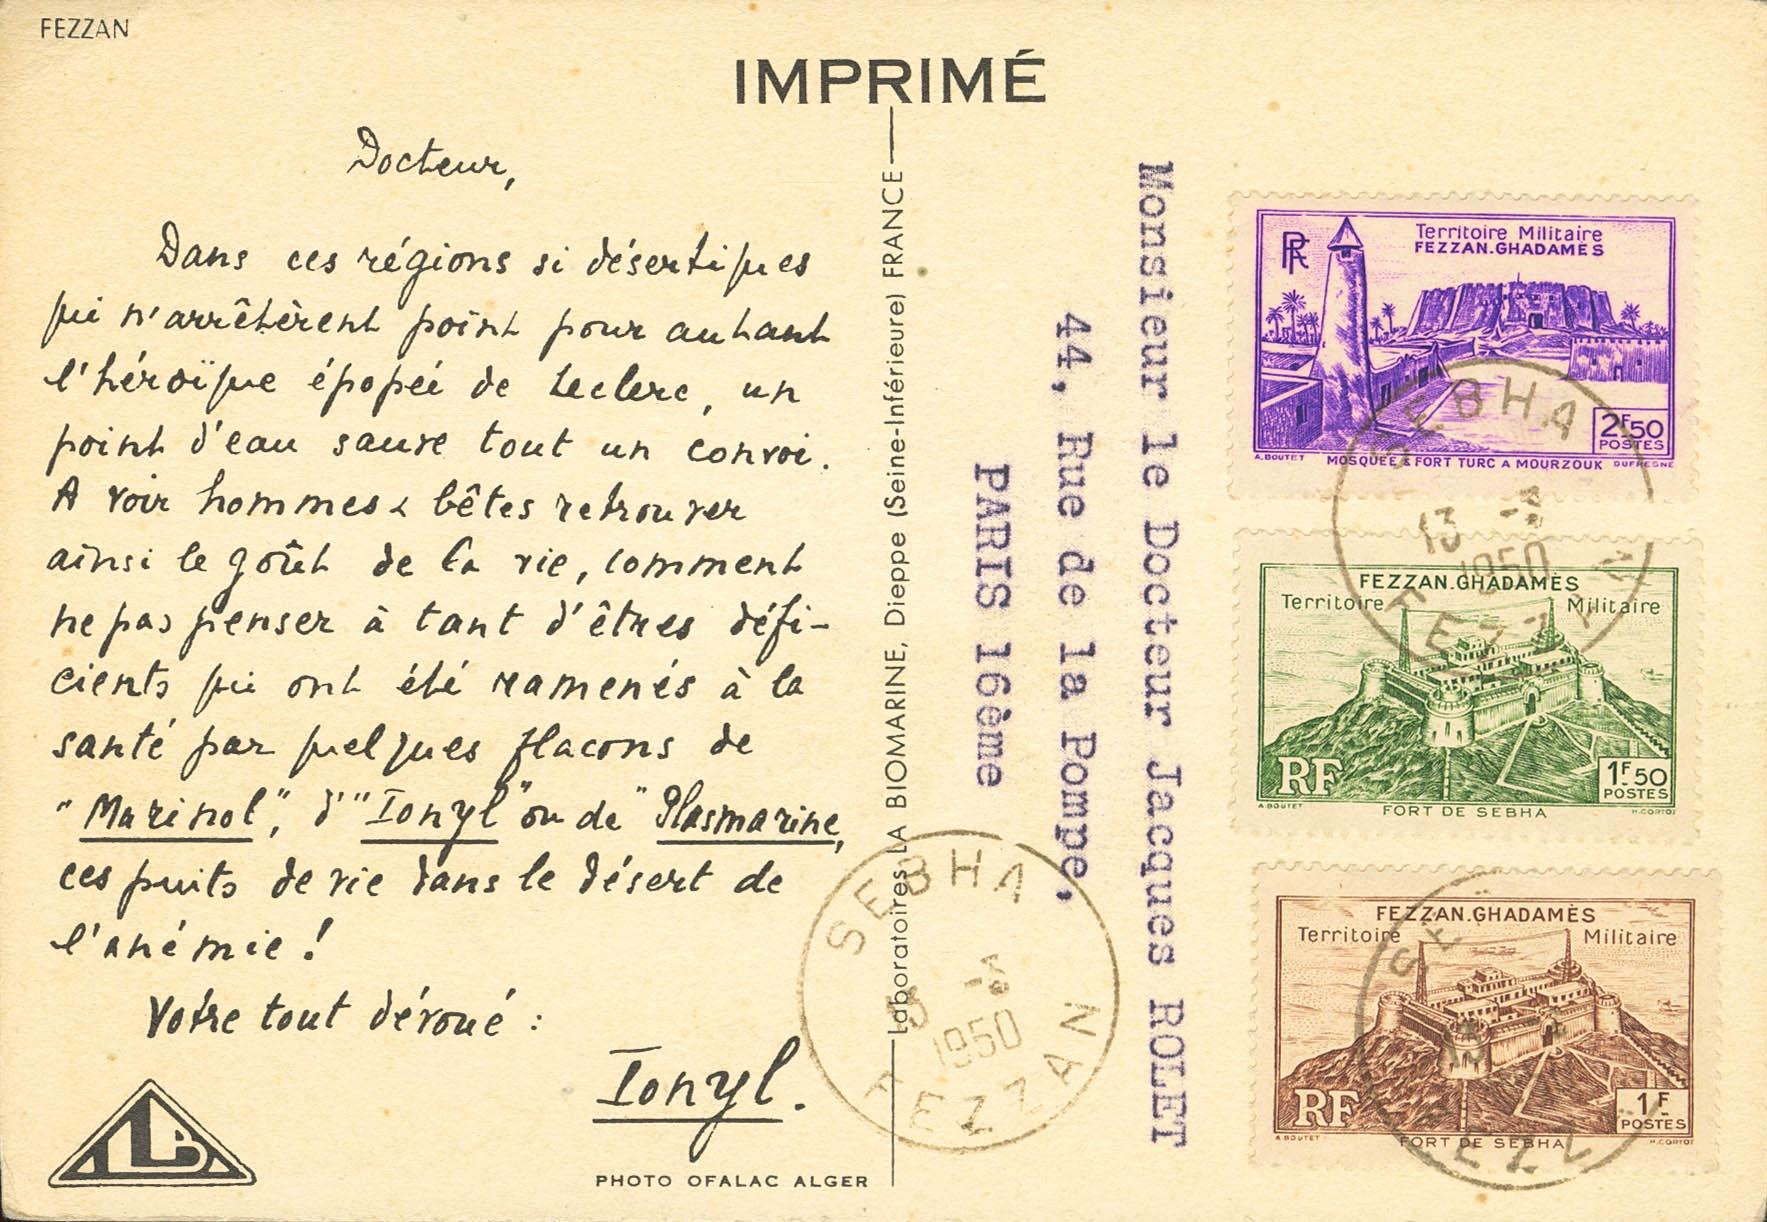 FEZZAN
IMPRIMÉ
Docteur,
Dans ces régions si désertiques
qui n'arrêtèrent point pour autant
l'héroïque épopée de Leclerc, un
point d'eau sauve tout un convoi.
A voir hommes & bêtes retrouver
ainsi le goût de la vie, comment
ne pas penser à tant d'êtres défi-
cients qui ont été ramenés à la
santé par quelques flacons de
"Marinol", d'"Ionyl" ou de "Plasmarine,
ces puits de vie dans le désert de
l'anémie !
Votre tout dévoué :
Ionyl.
LB
PHOTO OFALAC ALGER
Laboratoires LA BIOMARINE, Dieppe (Seine-Inférieure) FRANCE
Monsieur le Docteur Jacques ROLET
44, Rue de la Pompe,
PARIS 16ême
RF
Territoire Militaire
FEZZAN.GHADAMÈS
2F50
POSTES
A.BOUTET MOSQUÉE & FORT TURC A MOURZOUK DUFRESNE
SEBHA
13
1950
FEZZAN
FEZZAN.GHADAMÈS
Territoire Militaire
RF
1F50
POSTES
A BOUTET FORT DE SEBHA H.CORTOT
FEZZAN.GHADAMÈS
Territoire Militaire
RF
1F
POSTES
A BOUTET FORT DE SEBHA H.CORTOT
SEBHA
1950
FEZZAN